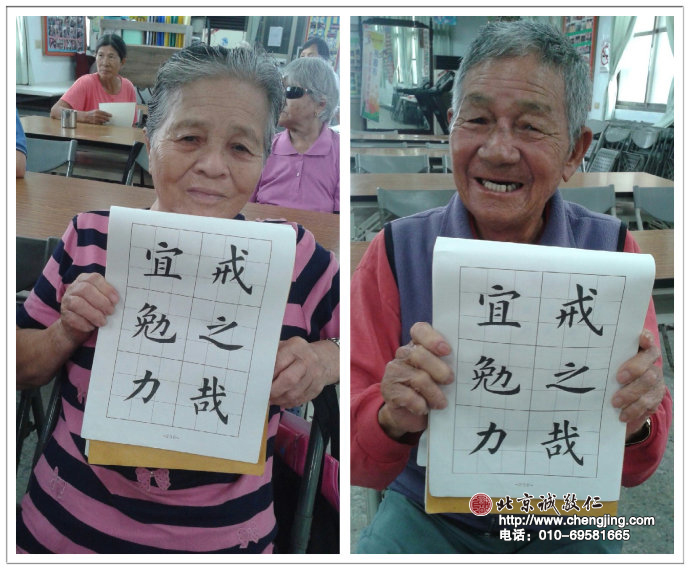 戒之哉
宜勉力
戒之哉
宜勉力
北京诚敬仁
http://www.chengjing.com
电话：010-69581665